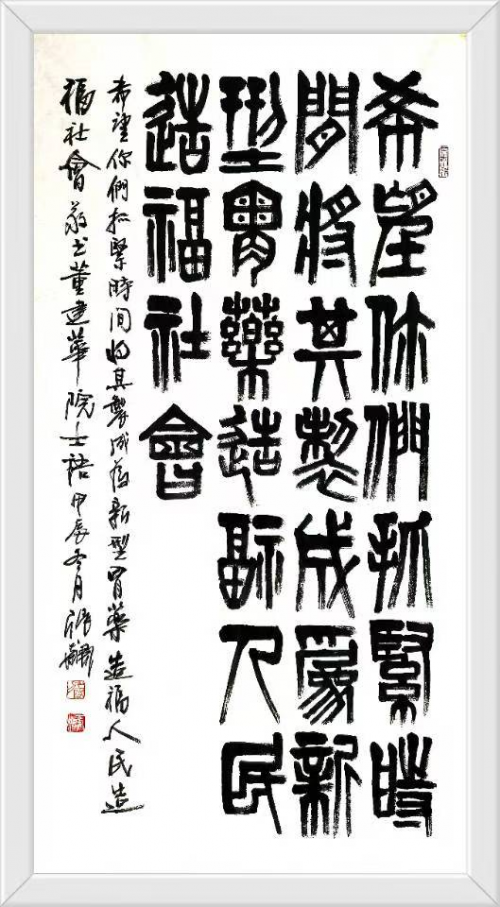 希望你們抓緊時
間將其製成為新
型胃藥造福人民
造福社會
希望你們抓緊時间将其製成為新型胃藥造福人民造
福社會 敬书董建華院士語 甲辰冬月 張